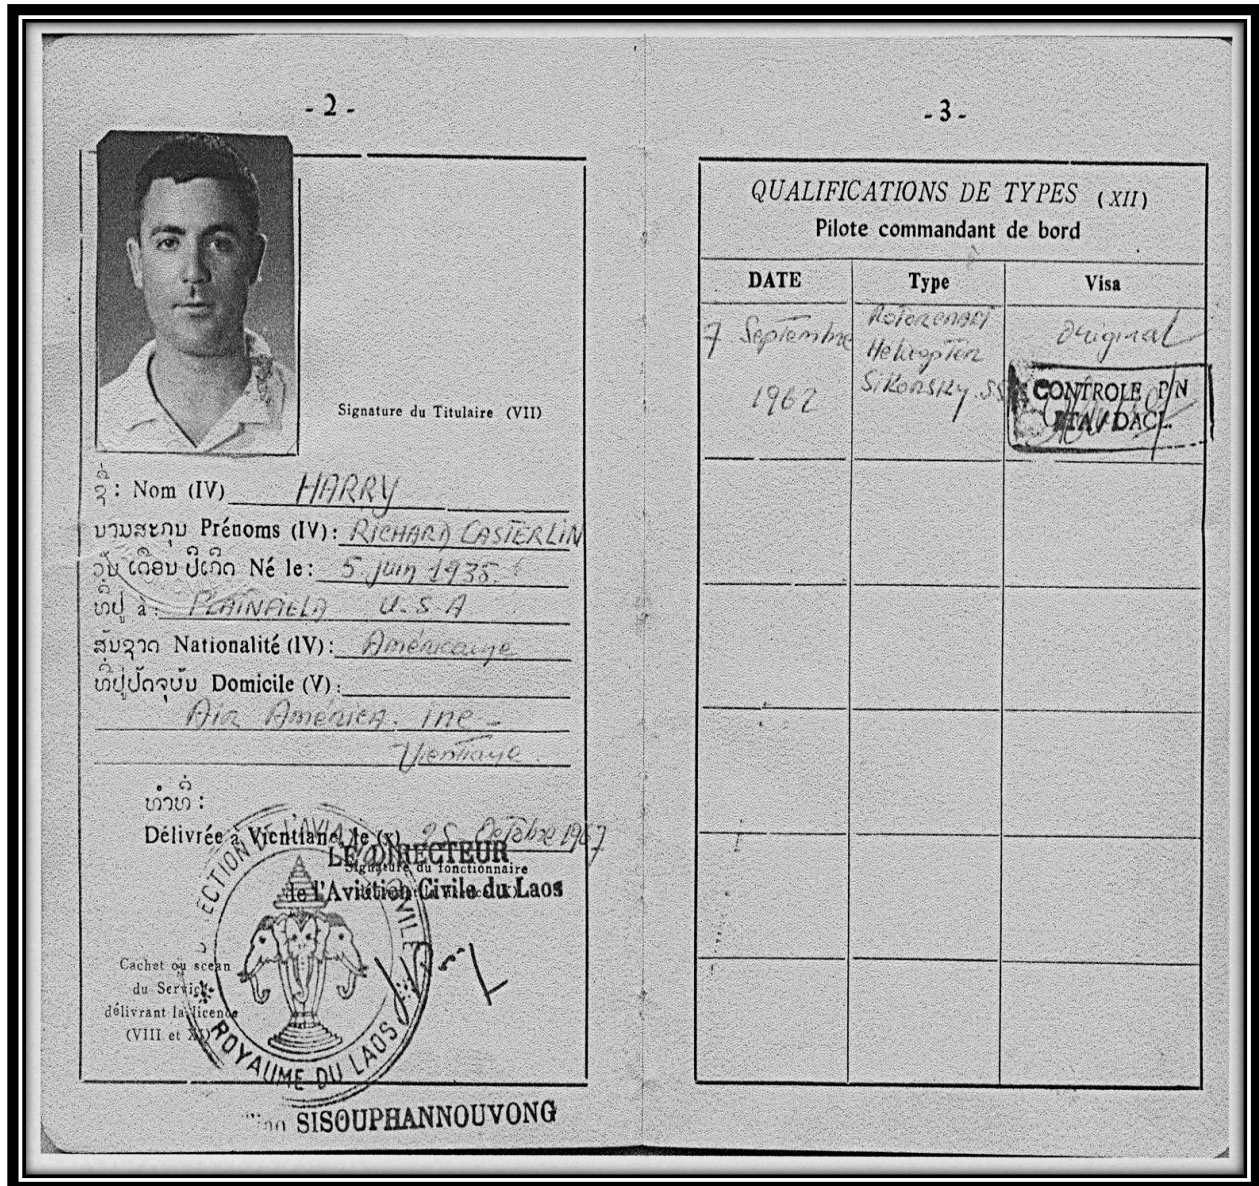 - 2 -
Signature du Titulaire (VII)
ຊື່ : Nom (IV) HARRY
ນາມສະກຸນ Prénoms (IV) : RICHARD CASTERLIN
ວັນ ເດືອນ ປີເກີດ Né le : 5 juin 1935
ທີ່ຢູ່ à : PLAINFIELD U.S.A
ສັນຊາດ Nationalité (IV) : Américaine
ທີ່ຢູ່ປັດຈຸບັນ Domicile (V) :
Air América. inc -
Vientiane
ທຳທີ່ :
Délivrée à Vientiane, le (x) 25 Octobre 1967
LE DIRECTEUR
Signature du fonctionnaire
de l'Avition Civile du Laos
Cachet ou sceau
du Service
délivrant la licence
(VIII et XI)
ROYAUME DU LAOS
SISOUPHANNOUVONG
- 3 -
QUALIFICATIONS DE TYPES (XII)
Pilote commandant de bord
DATE Type Visa
7 Septembre 1962
Helicopter
Sikorsky
Original
CONTROLE P/N
DACL